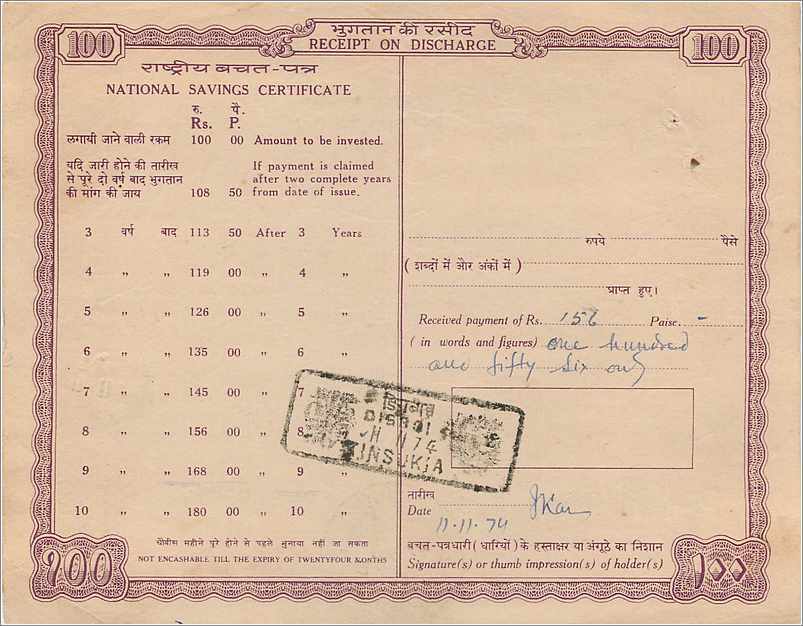 100
भुगतान की रसीद
RECEIPT ON DISCHARGE
100
राष्ट्रीय बचत-पत्र
NATIONAL SAVINGS CERTIFICATE
रु. पै.
Rs. P.
लगायी जाने वाली रकम 100 00 Amount to be invested.
यदि जारी होने की तारीख If payment is claimed
से पूरे दो वर्ष बाद भुगतान after two complete years
की मांग की जाय 108 50 from date of issue.
3 वर्ष बाद 113 50 After 3 Years
4 " " 119 00 " 4 "
5 " " 126 00 " 5 "
6 " " 135 00 " 6 "
7 " " 145 00 7 "
8 " " 156 00 " 8 "
9 " " 168 00 " 9 "
10 " " 180 00 " 10 "
चौबीस महीने पूरे होने से पहले भुनाया नहीं जा सकता
NOT ENCASHABLE TILL THE EXPIRY OF TWENTYFOUR MONTHS
रुपये पैसे
(शब्दों में और अंकों में)
प्राप्त हुए।
Received payment of Rs. 156 Paise. -
(in words and figures) one hundred
one fifty six only
11 11 74
TINSUKIA
तारीख
Date 11.11.74
बचत-पत्रधारी (धारियों) के हस्ताक्षर या अंगूठे का निशान
Signature(s) or thumb impression(s) of holder(s)
१००
१००